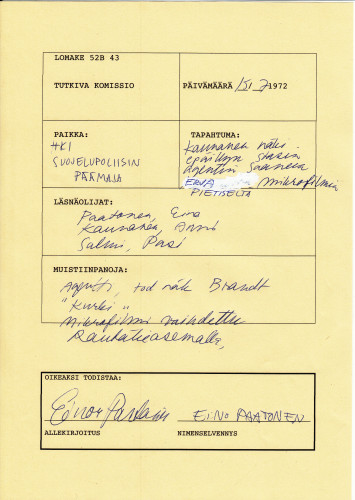 LOMAKE 52B 43
TUTKIVA KOMISSIO
PÄIVÄMÄÄRÄ 1972
PAIKKA:
HKI
SUOJELUPOLIISIN
PÄÄMAJA
TAPAHTUMA:
Kaunanen näki
epäillyn stasin
agentin saaneen
mikrofilmin
PIETISELTÄ
LÄSNÄOLIJAT:
Paatonen, Eino
Kaunanen, Anni
Salmi, Pasi
MUISTIINPANOJA:
Agentti, tod näk Brandt
"Kurki"
Mikrofilmi vaihdettu
Rautatieasemalla,
OIKEAKSI TODISTAA:
EINO PAATONEN
ALLEKIRJOITUS
NIMENSELVENNYS